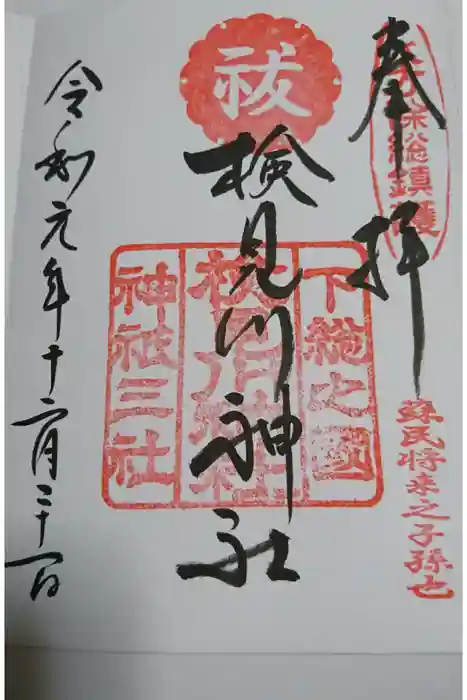 奉拝
総鎮護
蘇民将来之子孫也
祓
検見川神社
下総之國
神祇三社
令和元年十二月三十一日